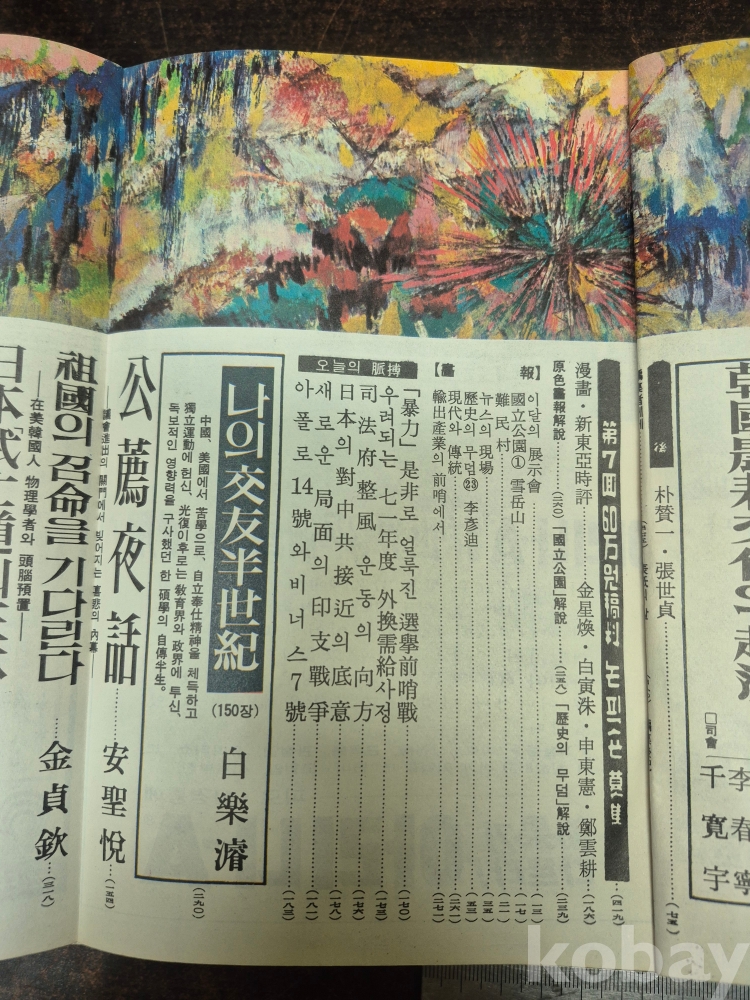 韓國
□司會
李春寧
千寬宇
朴贊一・張世貞
(七五)
第7回 60万원稿料 논픽션 募集
(四一九)
漫畫・新東亞時評
金星煥・白寅洙・申東憲・鄭雲耕
(一八六)
原色畫報解說
(三六〇)
「國立公園」解說
(三五八)
「歷史의 무덤」解說
(二三九)
【畫報】
이달의 展示會
(一三)
國立公園① 雪岳山
(一七)
難民村
(二一)
뉴스의 現場
(三五)
歷史의 무덤㉓ 李彦迪
(五三)
現代와 傳統
(二六一)
輸出産業의 前哨에서
(二七一)
오늘의 脈搏
「暴力」是非로 얼룩진 選擧前哨戰
(一七〇)
우려되는 七一年度 外換需給사정
(一七三)
司法府整風 운동의 向方
(一七六)
日本의 對中共接近의 底意
(一七八)
새로운 局面의 印支戰爭
(一八一)
아폴로 14號와 비너스 7號
(一八三)
나의 交友半世紀
(150장)
白樂濬
中國、美國에서 苦學으로、自立奉仕精神을 체득하고
獨立運動에 헌신、光復이후로는 敎育界와 政界에 투신、
독보적인 영향력을 구사했던 한 碩學의 自傳半生。
(二九〇)
公薦夜話
議會進出의 關門에서 빚어지는 喜悲의 內幕
安聖悅
(一五四)
祖國의 召命을 기다린다
—在美韓國人 物理學者와 頭腦預置—
金貞欽
(三一八)
日本
kobay